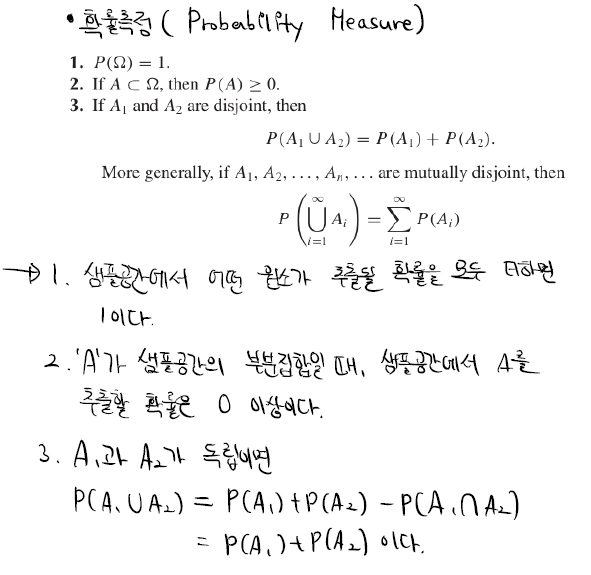 • 확률측정 ( Probability Measure)
1. P(Ω) = 1.
2. If A ⊂ Ω, then P(A) ≥ 0.
3. If A₁ and A₂ are disjoint, then
P(A₁ ∪ A₂) = P(A₁) + P(A₂).
More generally, if A₁, A₂, . . . , Aₙ, . . . are mutually disjoint, then
P(⋃_{i=1}^{∞} A_i) = ∑_{i=1}^{∞} P(A_i)
→ 1. 샘플공간에서 어떤 원소가 추출될 확률을 모두 더하면
1이다.
2. 'A'가 샘플공간의 부분집합일 때, 샘플공간에서 A를
추출할 확률은 0 이상이다.
3. A₁과 A₂가 독립이면
P(A₁ ∪ A₂) = P(A₁) + P(A₂) - P(A₁ ∩ A₂)
= P(A₁) + P(A₂) 이다.